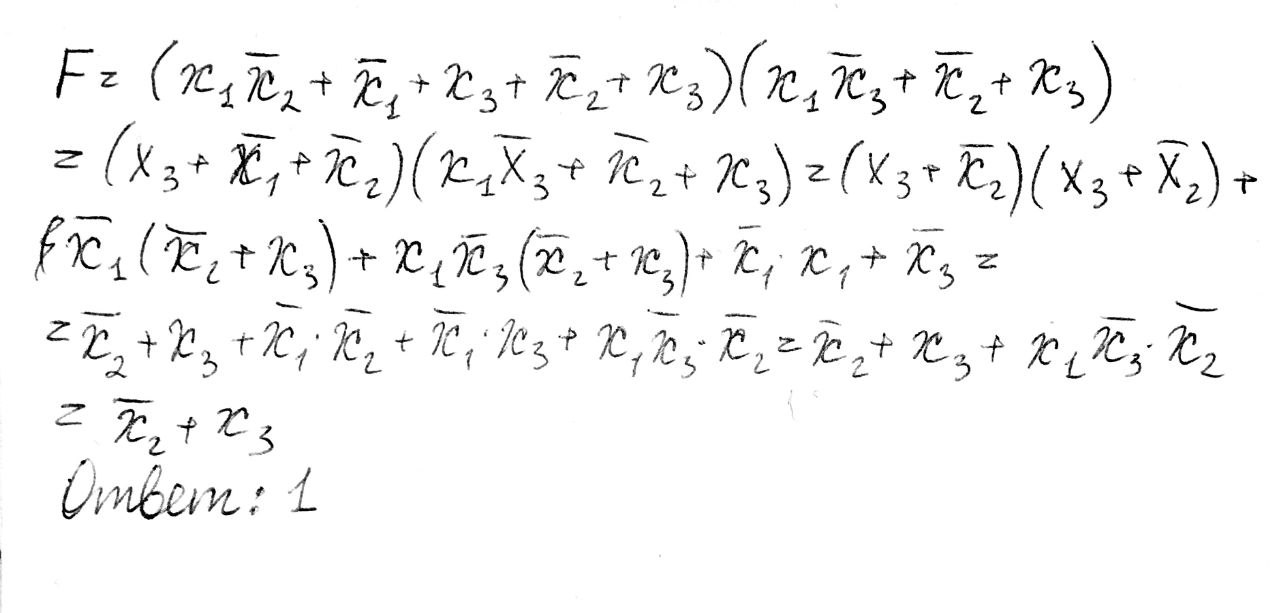 F = (x₁x̄₂ + x̄₁ + x₃ + x̄₂ + x₃)(x₁x̄₃ + x̄₂ + x₃)
= (x₃ + x̄₁ + x̄₂)(x₁x̄₃ + x̄₂ + x₃) = (x₃ + x̄₂)(x₃ + x̄₂) +
x̄₁(x̄₂ + x₃) + x₁x̄₃(x̄₂ + x₃) + x̄₁·x₁ + x̄₃ =
= x̄₂ + x₃ + x̄₁·x̄₂ + x̄₁·x₃ + x₁x̄₃·x̄₂ = x̄₂ + x₃ + x₁x̄₃·x̄₂
= x̄₂ + x₃
Ответ: 1